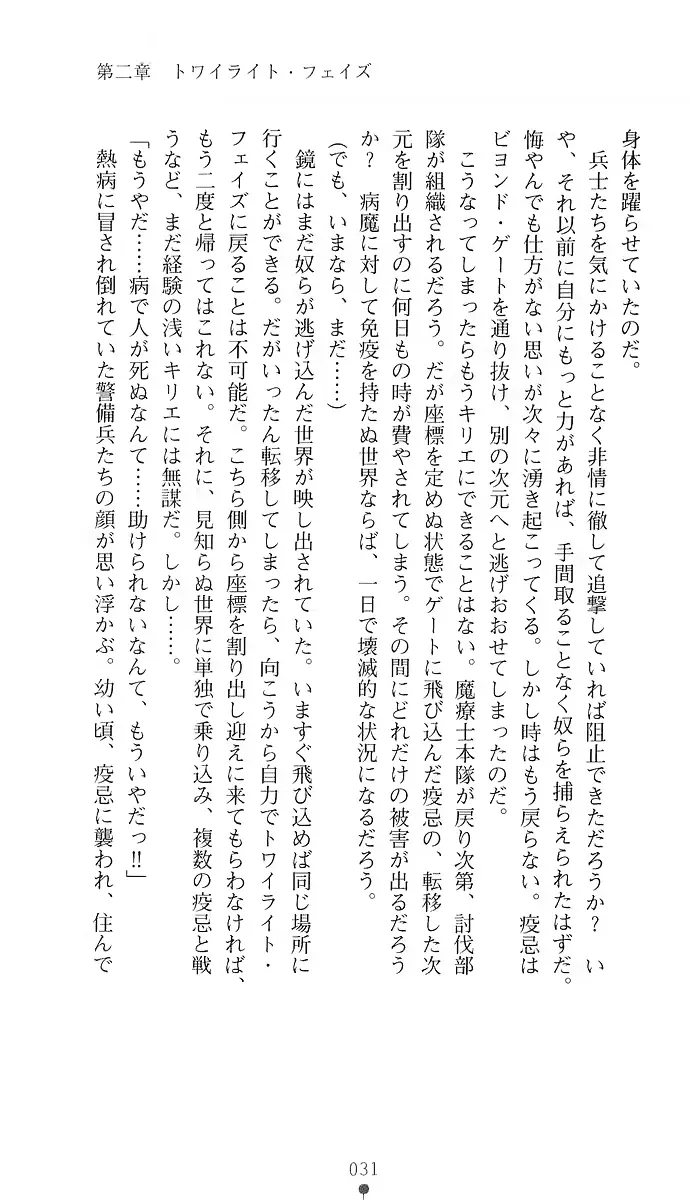 第二章　トワイライト・フェイズ
身体を躍らせていたのだ。
　兵士たちを気にかけることなく非情に徹して追撃していれば阻止できただろうか？　い
や、それ以前に自分にもっと力があれば、手間取ることなく奴らを捕らえられたはずだ。
悔やんでも仕方がない思いが次々に湧き起こってくる。しかし時はもう戻らない。疫忌は
ビヨンド・ゲートを通り抜け、別の次元へと逃げおおせてしまったのだ。
　こうなってしまったらもうキリエにできることはない。魔療士本隊が戻り次第、討伐部
隊が組織されるだろう。だが座標を定めぬ状態でゲートに飛び込んだ疫忌の、転移した次
元を割り出すのに何日もの時が費やされてしまう。その間にどれだけの被害が出るだろう
か？　病魔に対して免疫を持たぬ世界ならば、一日で壊滅的な状況になるだろう。
（でも、いまなら、まだ……）
　鏡にはまだ奴らが逃げ込んだ世界が映し出されていた。いますぐ飛び込めば同じ場所に
行くことができる。だがいったん転移してしまったら、向こうから自力でトワイライト・
フェイズに戻ることは不可能だ。こちら側から座標を割り出し迎えに来てもらわなければ、
もう二度と帰ってはこれない。それに、見知らぬ世界に単独で乗り込み、複数の疫忌と戦
うなど、まだ経験の浅いキリエには無謀だ。しかし……。
「もうやだ……病で人が死ぬなんて……助けられないなんて、もういやだっ‼」
　熱病に冒され倒れていた警備兵たちの顔が思い浮かぶ。幼い頃、疫忌に襲われ、住んで
031